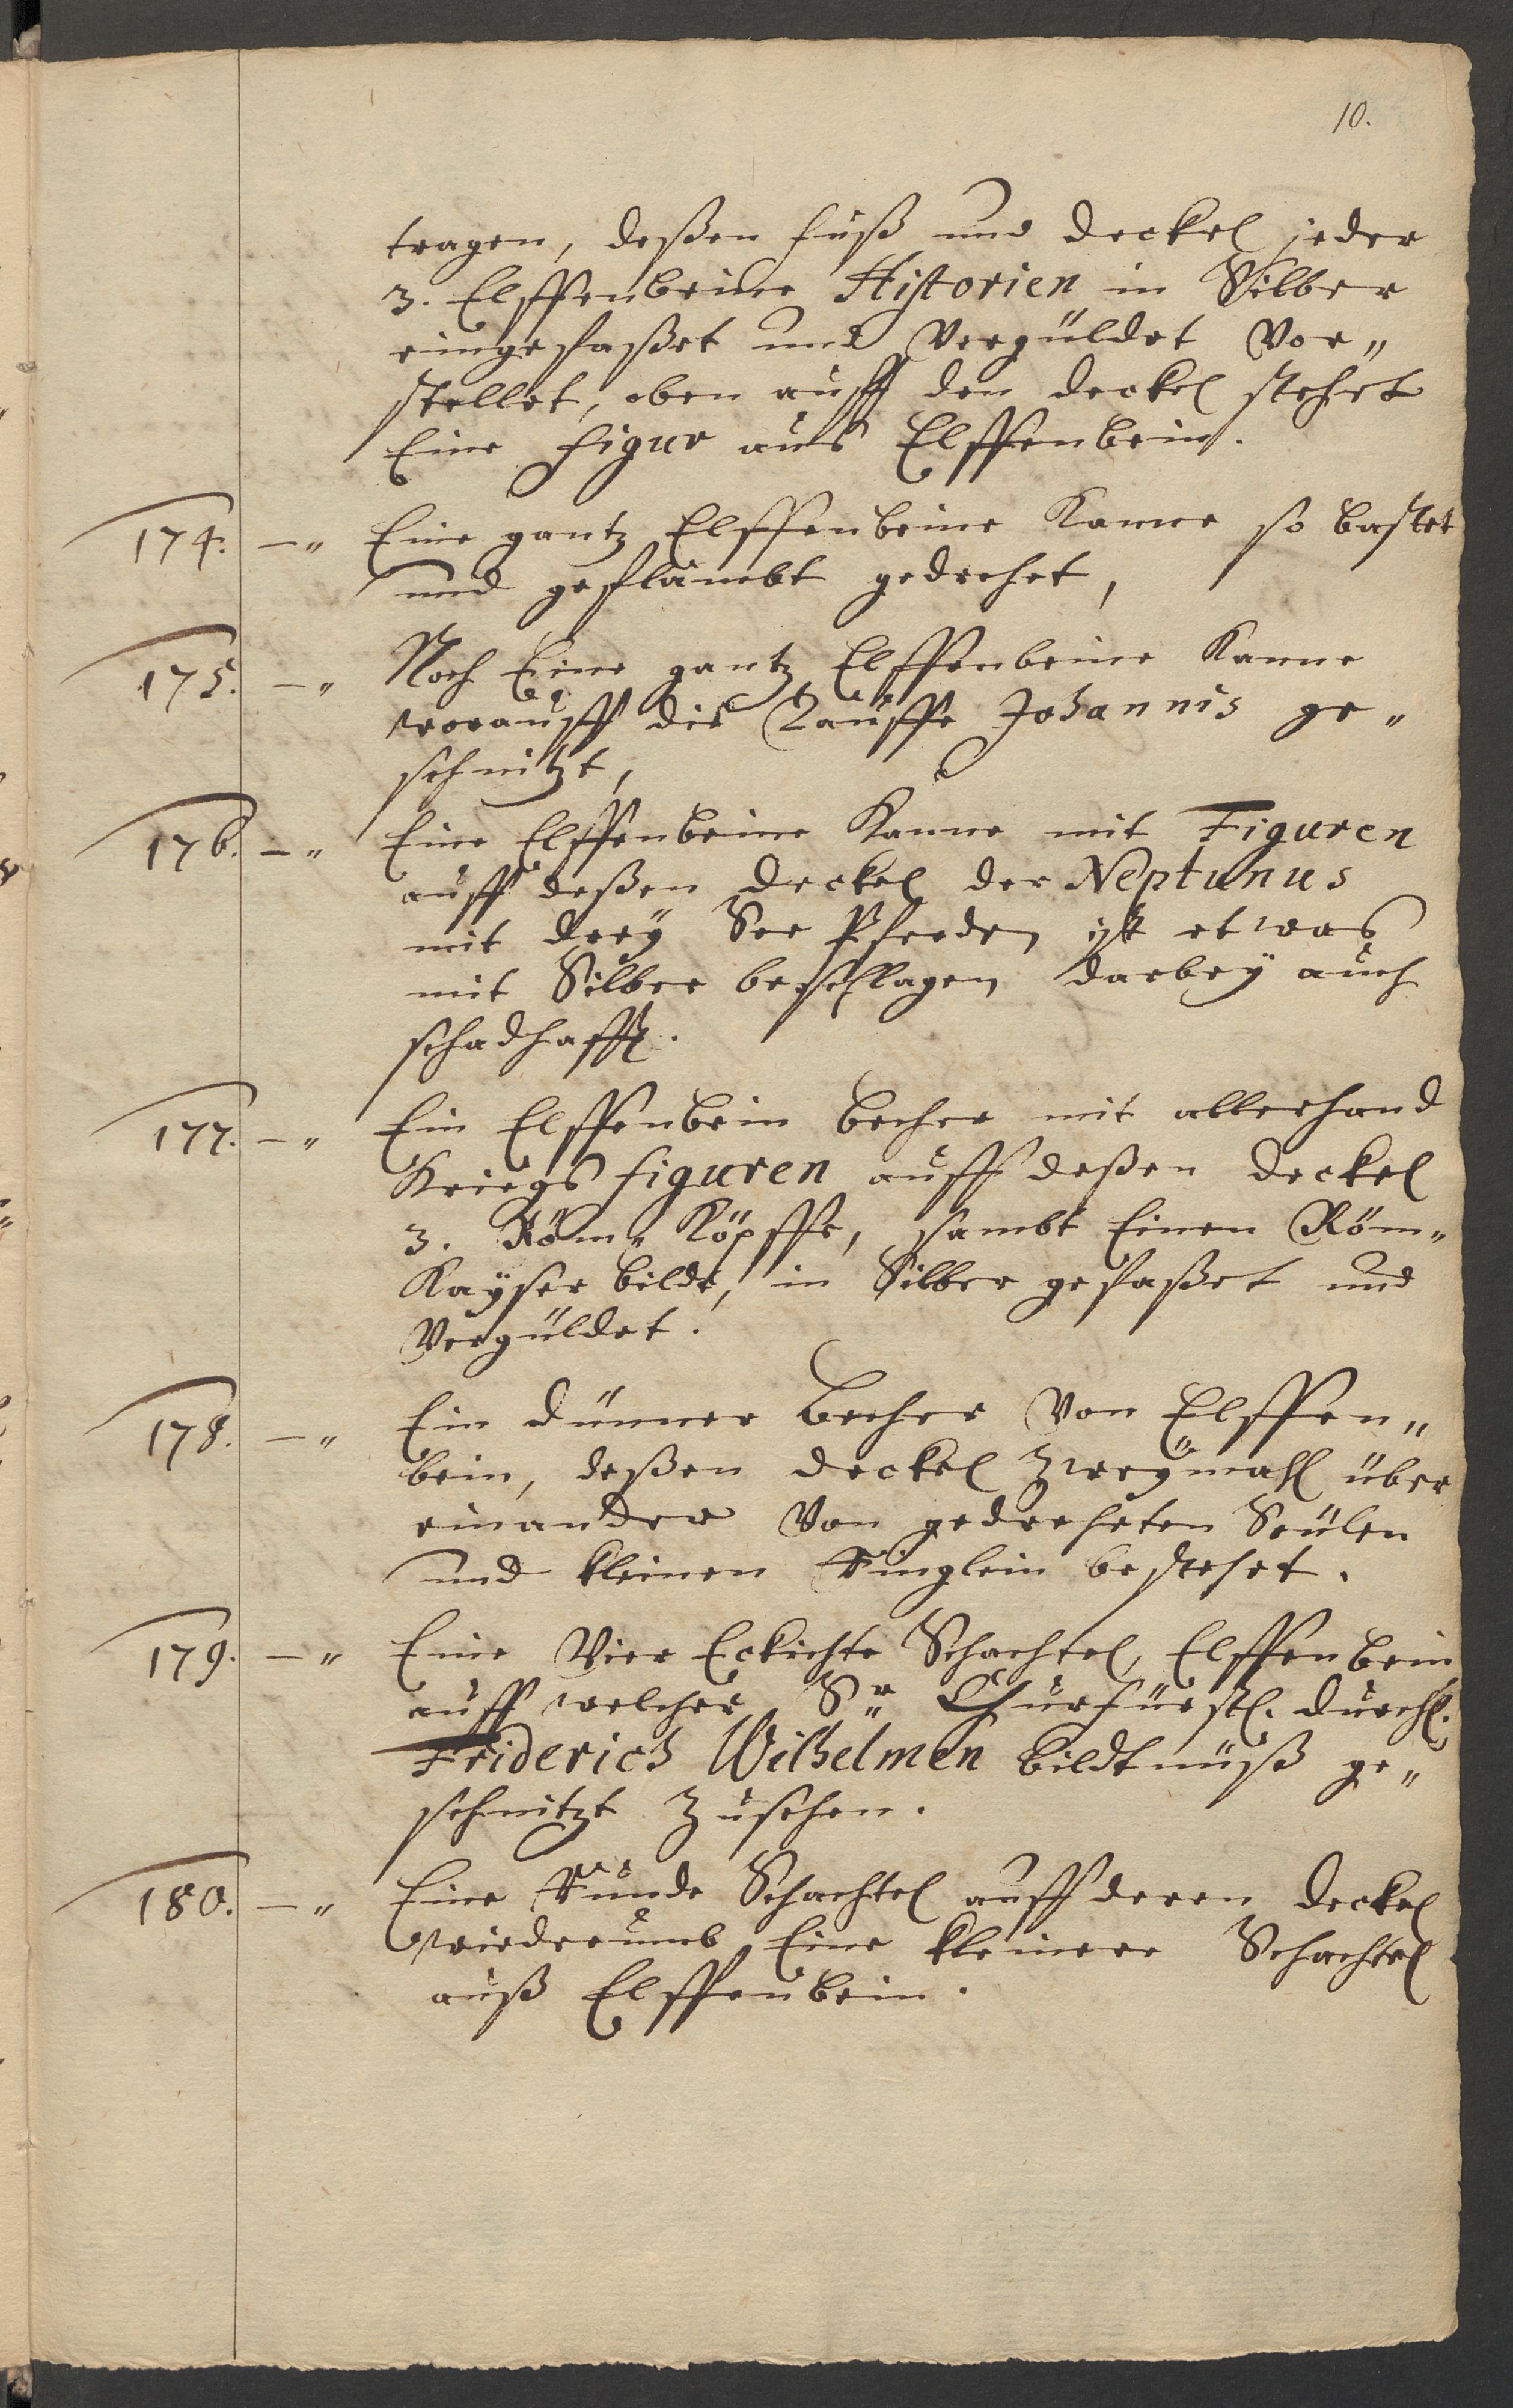 10.
tragen, deßen fuß und deckel jeder
3. Elffenbeine Historien in Silber
eingefaßet und verguldet vor„
stellet, oben auff den deckel stehet
Eine figur aus Elffenbein.
174. –„ Eine gantz Elffenbeine Kanne so
und geflambt gedrehet,
175. –„ Noch Eine gantz Elffenbeine Kanne
worauff die Tauffe Johannis ge„
schnitzt,
176. –„ Eine Elffenbeine Kanne mit Figuren
auff deßen deckel der Neptunus
mit drey See Pferden ist etwas
mit Silber beschlagen darbey auch
schadhafft.
177. –„ Ein Elffenbein becher mit allerhand
Kriegs figuren auff deßen deckel
3. Röm„ Köpffe, sambt Einen Röm„
Kayser bilde, in Silber gefaßet und
verguldet.
178. –„ Ein dünner becher von Elffen„
bein, deßen deckel zweymahl über
einander von gedreheten Seulen
und kleinen Ringlein bestehet.
179. –„ Eine Vier Eckichte Schachtel, Elffenbein
auff welcher Sr Churfürstl. durchl.
Friderich Wilhelmen bildtnüß ge„
schnitzt zusehen.
180. –„ Eine Runde Schachtel auff deren deckel
wiederumb Eine kleinere Schachtel
auß Elffenbein.